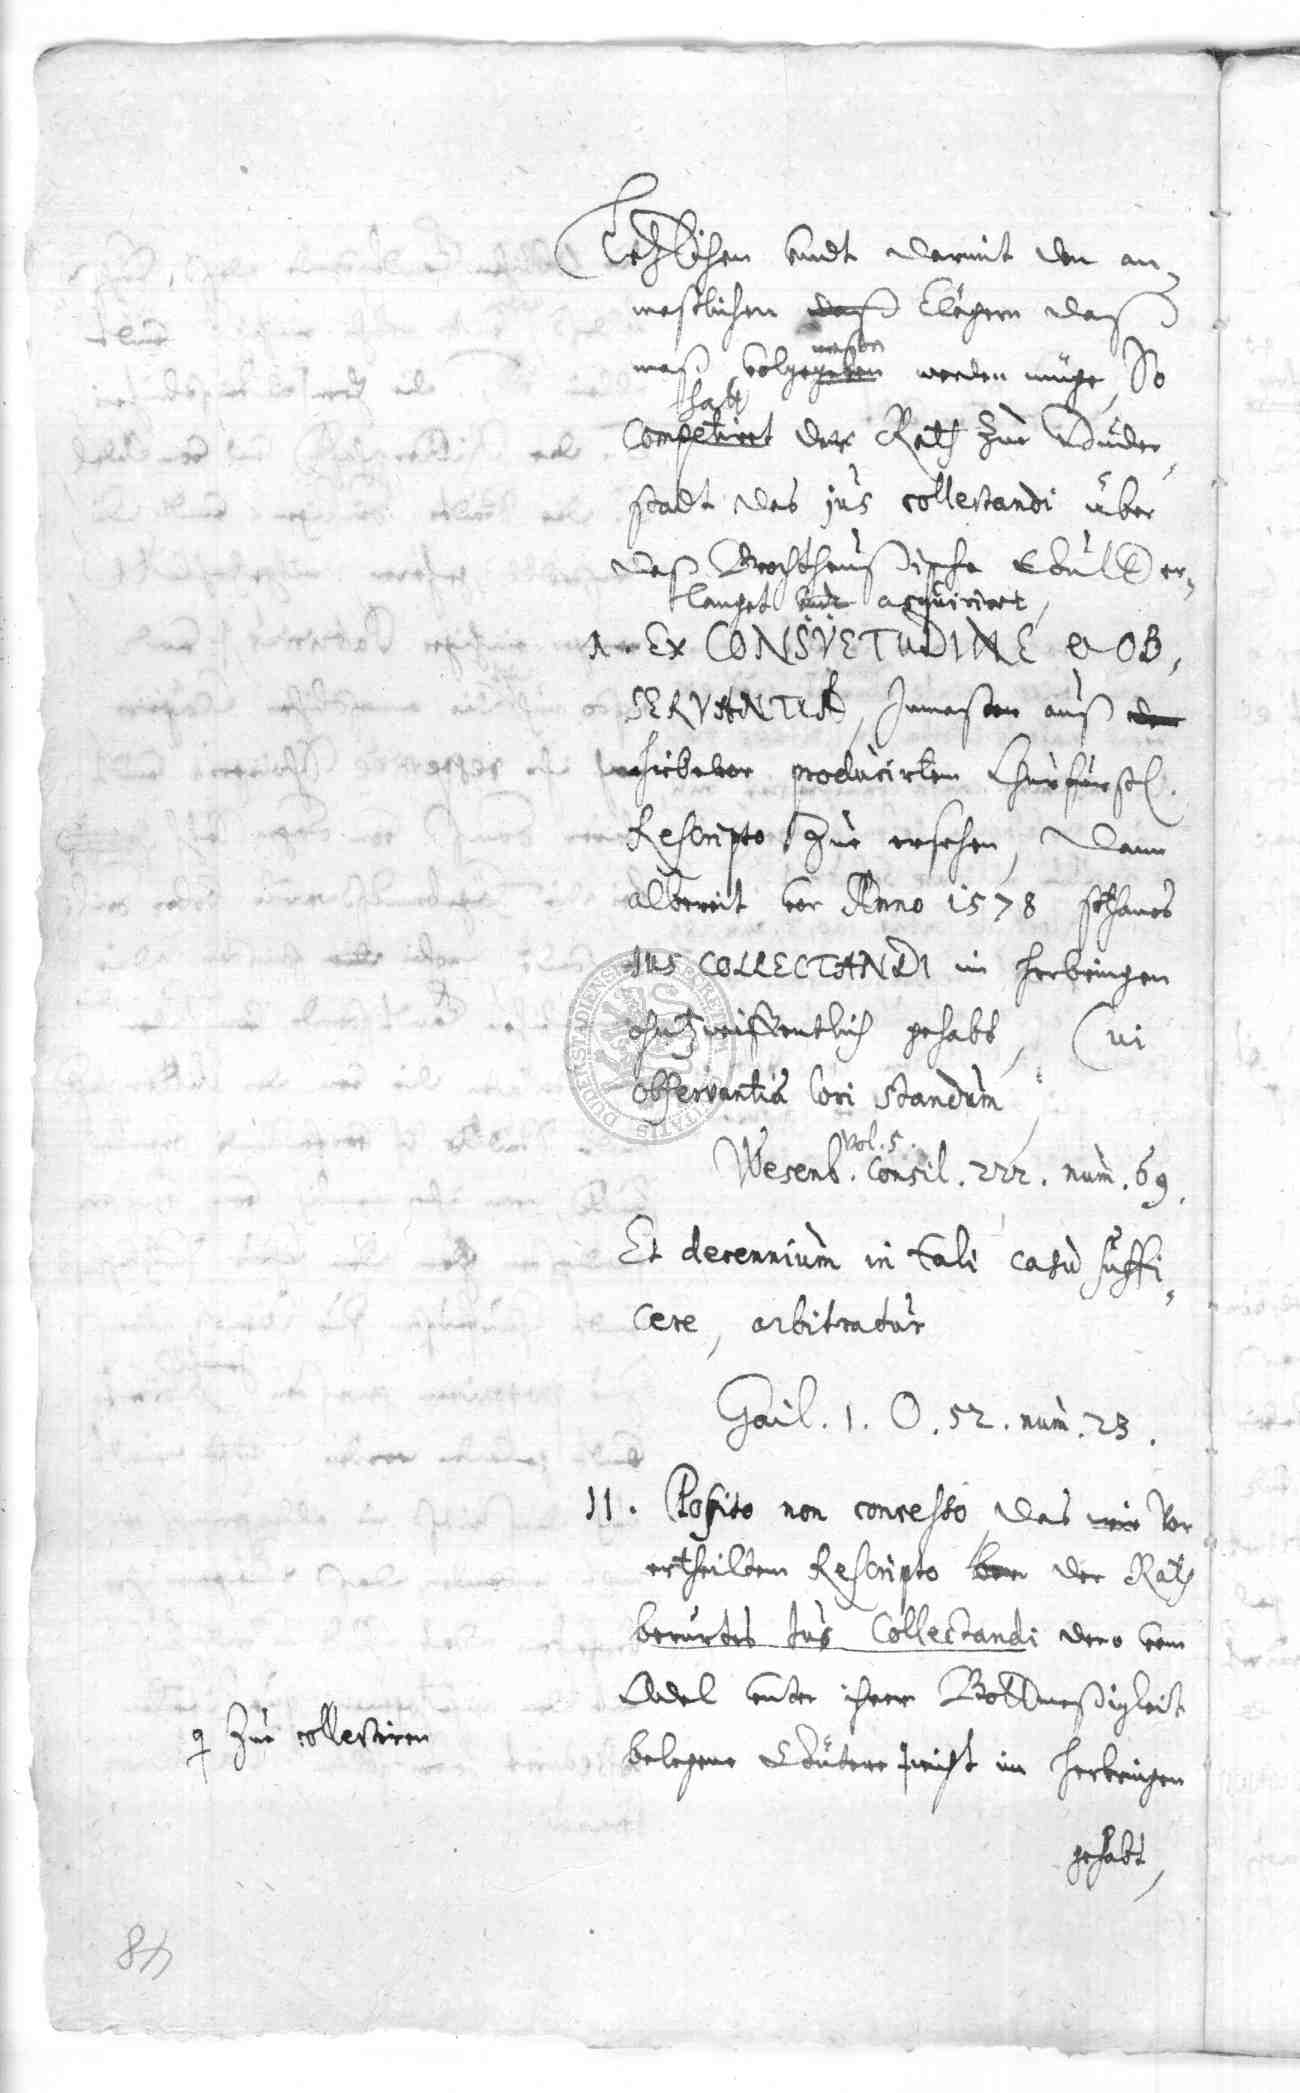 Letzlichen undt darmit den an-
maßlichen daß Clägern daß
maß volgegeben werden müge, So
meßen
hatt
Competirt der Rath zue Duder-
stadt das jus collectandi über
daß Brochthaußische Guth er-
langet undt acquiriret,
1. EX CONSVETUDINE & OB-
SERVANTIA, Inmaßen auß der
hiebevor producirten Churfürstl.
Rescripto zue ersehen, dann
albereit vor Anno 1578 sothanes
IUS COLLECTANDI im herbringen
ohnzweiffentlich gehabt, Cui
observantiæ loci standum
Wesenb. vol. 5. Consil. 222. num. 69.
Et decennium in tali casu suffi-
cere, arbitratur
Gail. 1. O. 52. num. 23.
II. Posito non concesso, das wir vor
ertheiltem Rescripto der Rath
berürtes Jus Collectandi dero vom
Adel unter ihrer Bottmeßigkeit
belegene Güetere nicht im herbringen
zue collectiren
gehabt,
84